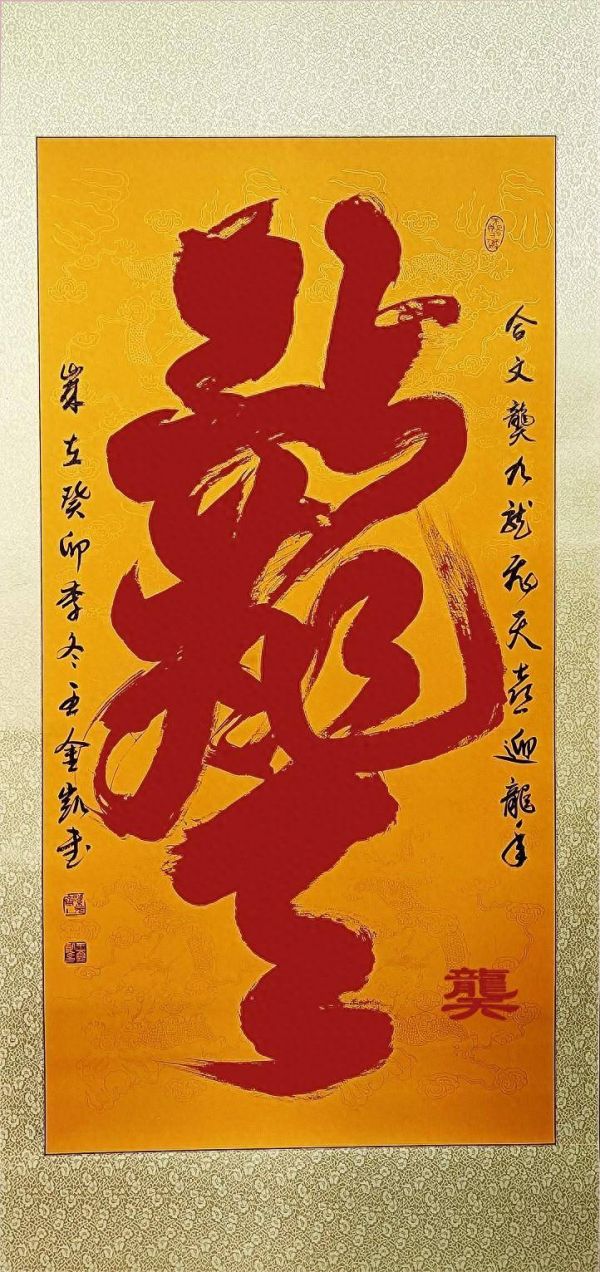 龑
合文龑九龙飛天喜迎龍年
歲在癸卯季冬王金凯書
龑